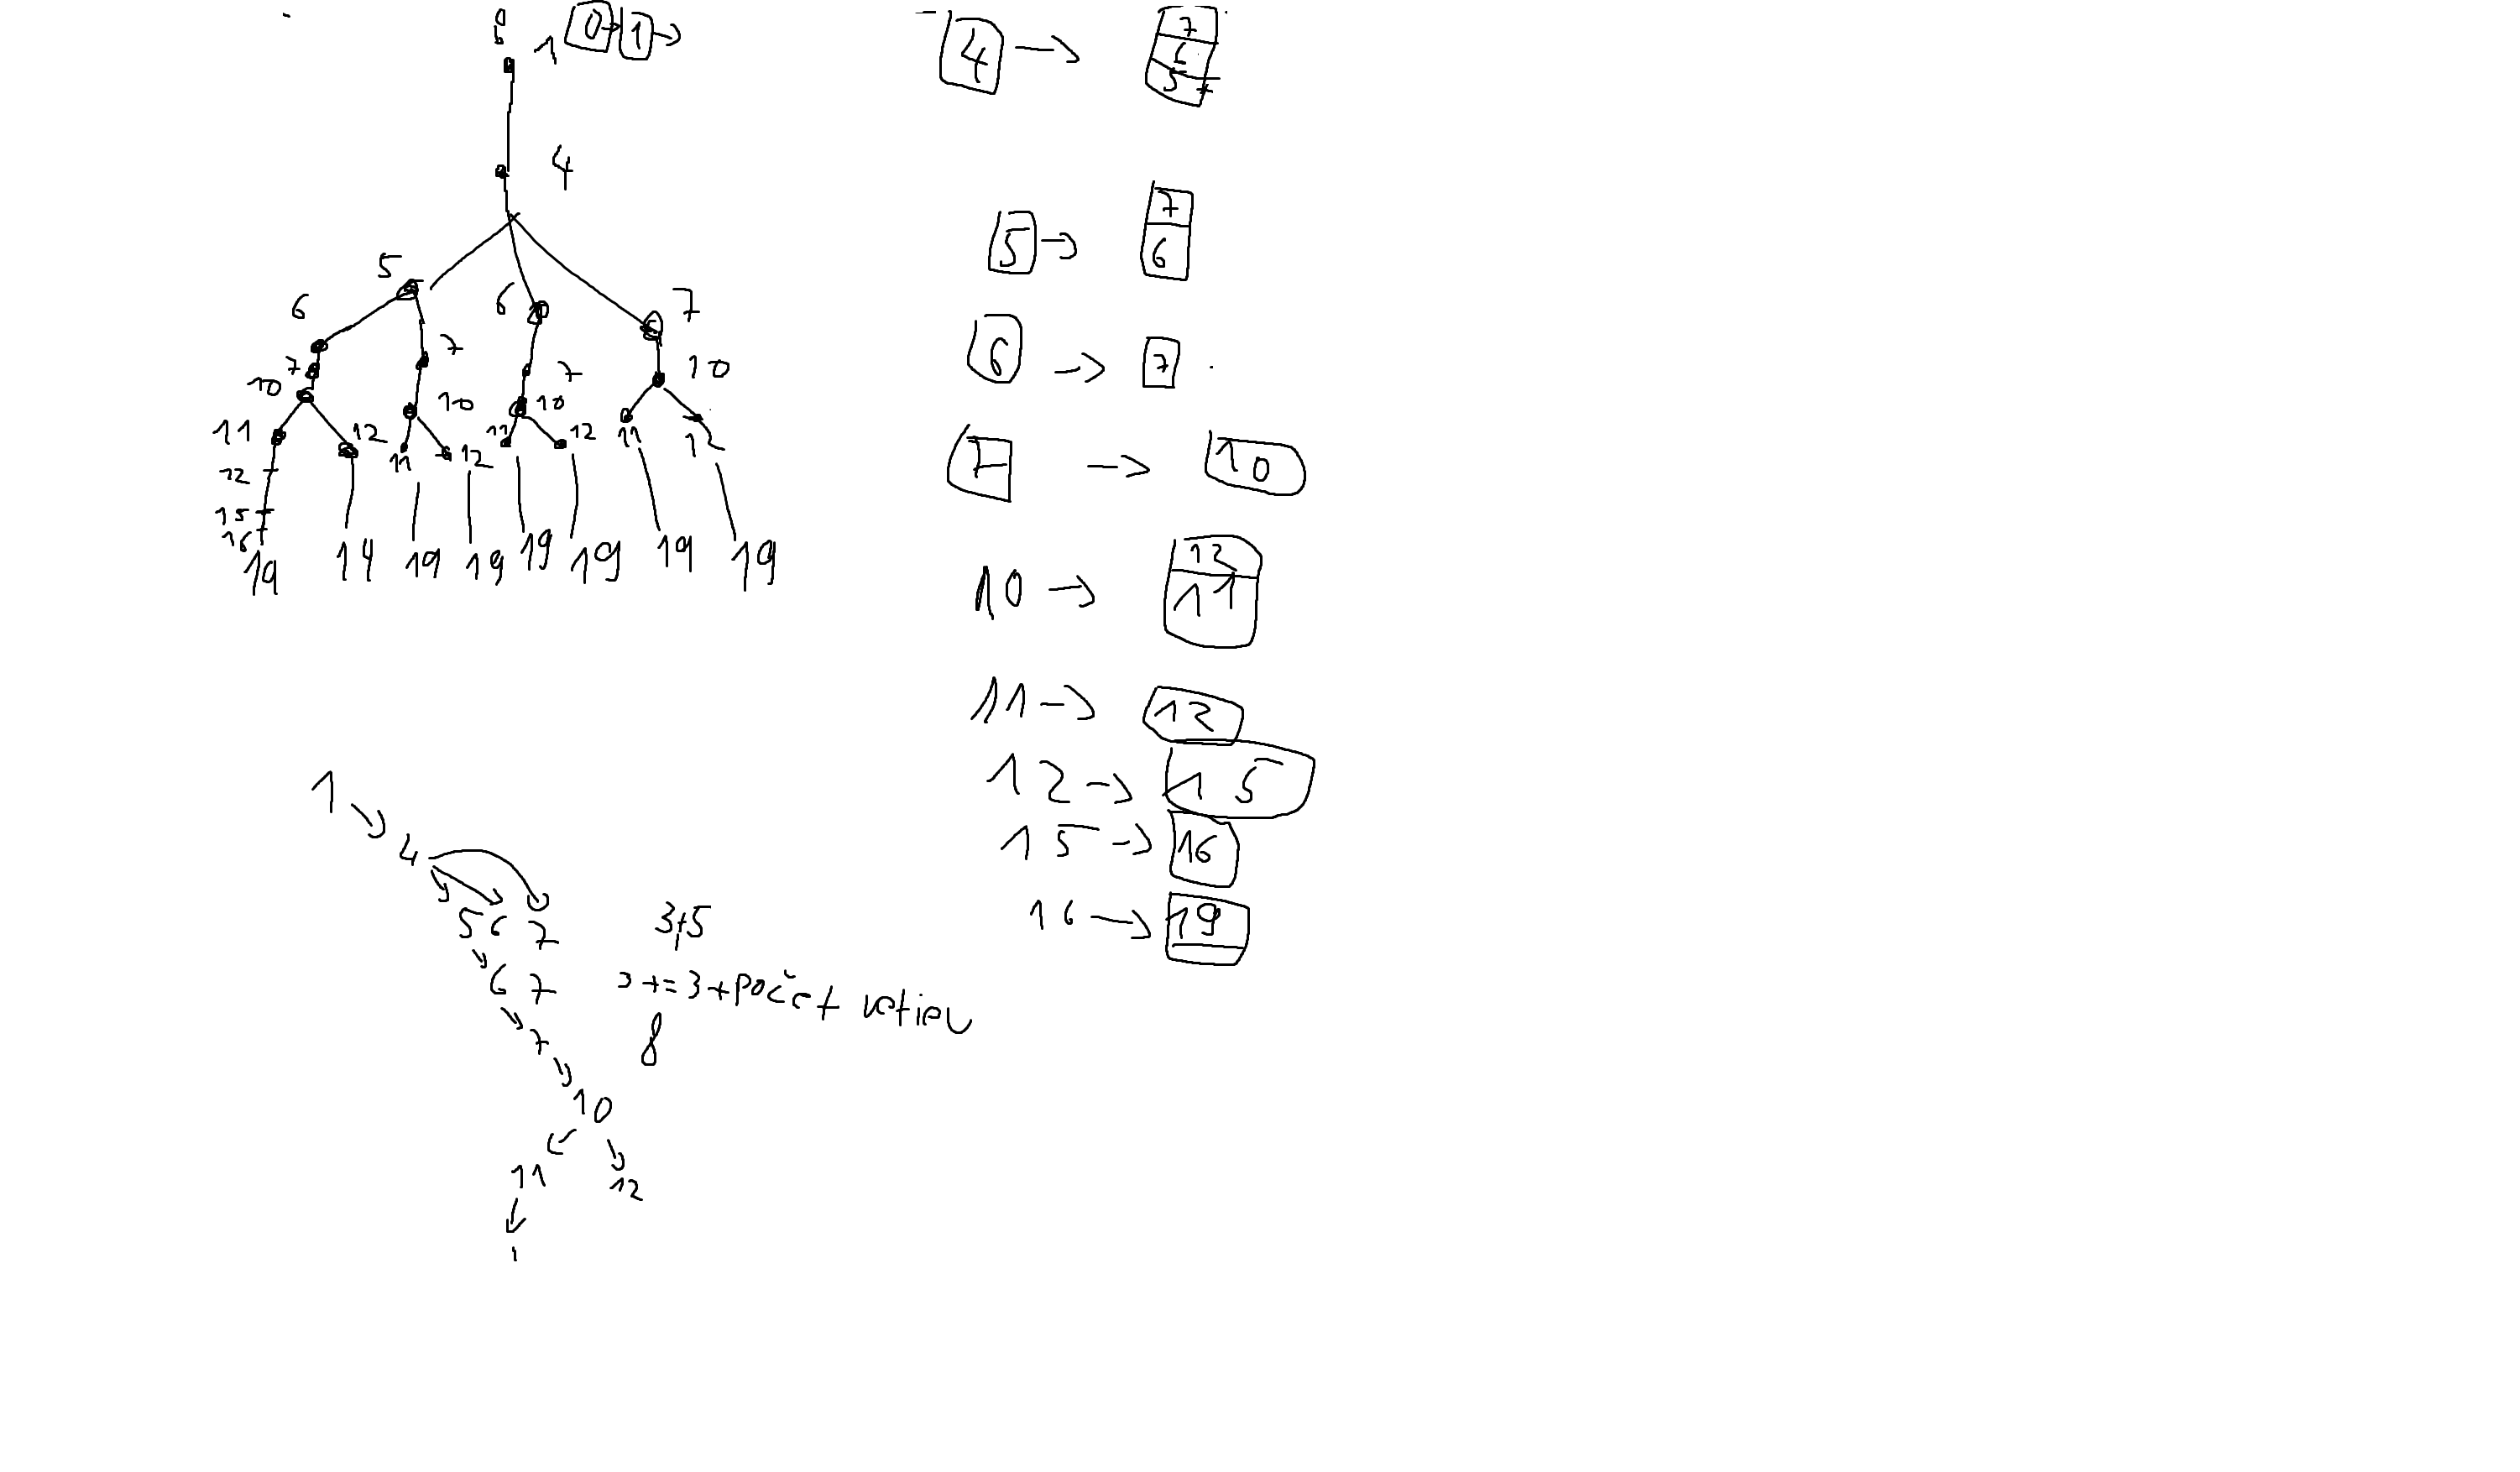 0
1 0 → 1 →
4
5
6 6 7
7 7 7 10
10 10 10
11 12 11 12 11 12 11 12
12
15
16
19 14 19 19 19 19 19 19
4 → 7 6 5
5 → 7 6
6 → 7
7 → 10
10 → 12 11
11 → 12
12 → 15
15 → 16
16 → 19
1
4
5 6 7
6 7
7
10
11 12
3+5
+= 3+počet
8